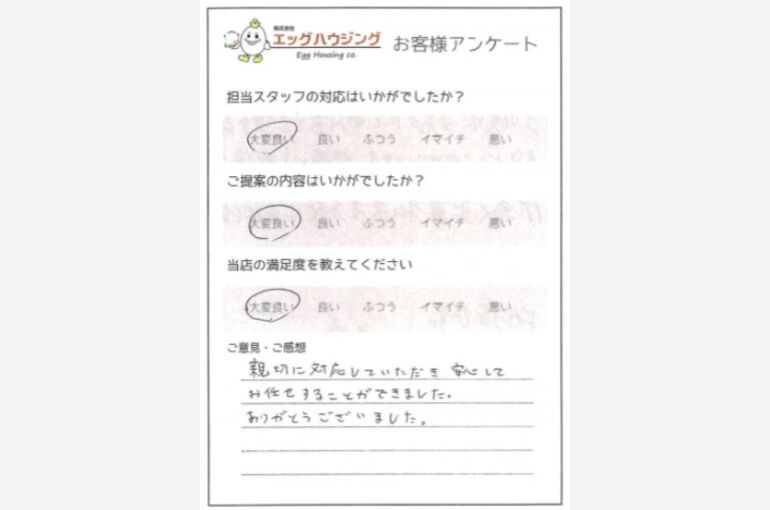 株式会社
エッグハウジング お客様アンケート
Egg Housing co.
担当スタッフの対応はいかがでしたか？
大変良い 良い ふつう イマイチ 悪い
ご提案の内容はいかがでしたか？
大変良い 良い ふつう イマイチ 悪い
当店の満足度を教えてください
大変良い 良い ふつう イマイチ 悪い
ご意見・ご感想
親切に対応していただき 安心して
お任せすることができました。
ありがとうございました。